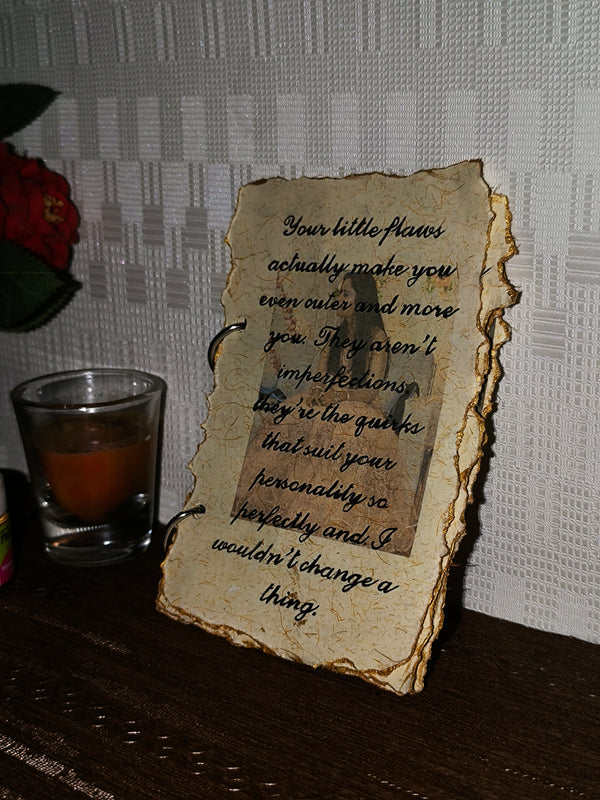 Your little flaws
actually make you
even outer and more
you. They aren't
imperfections,
they're the quirks
that suit your
personality so
perfectly and I
wouldn't change a
thing.